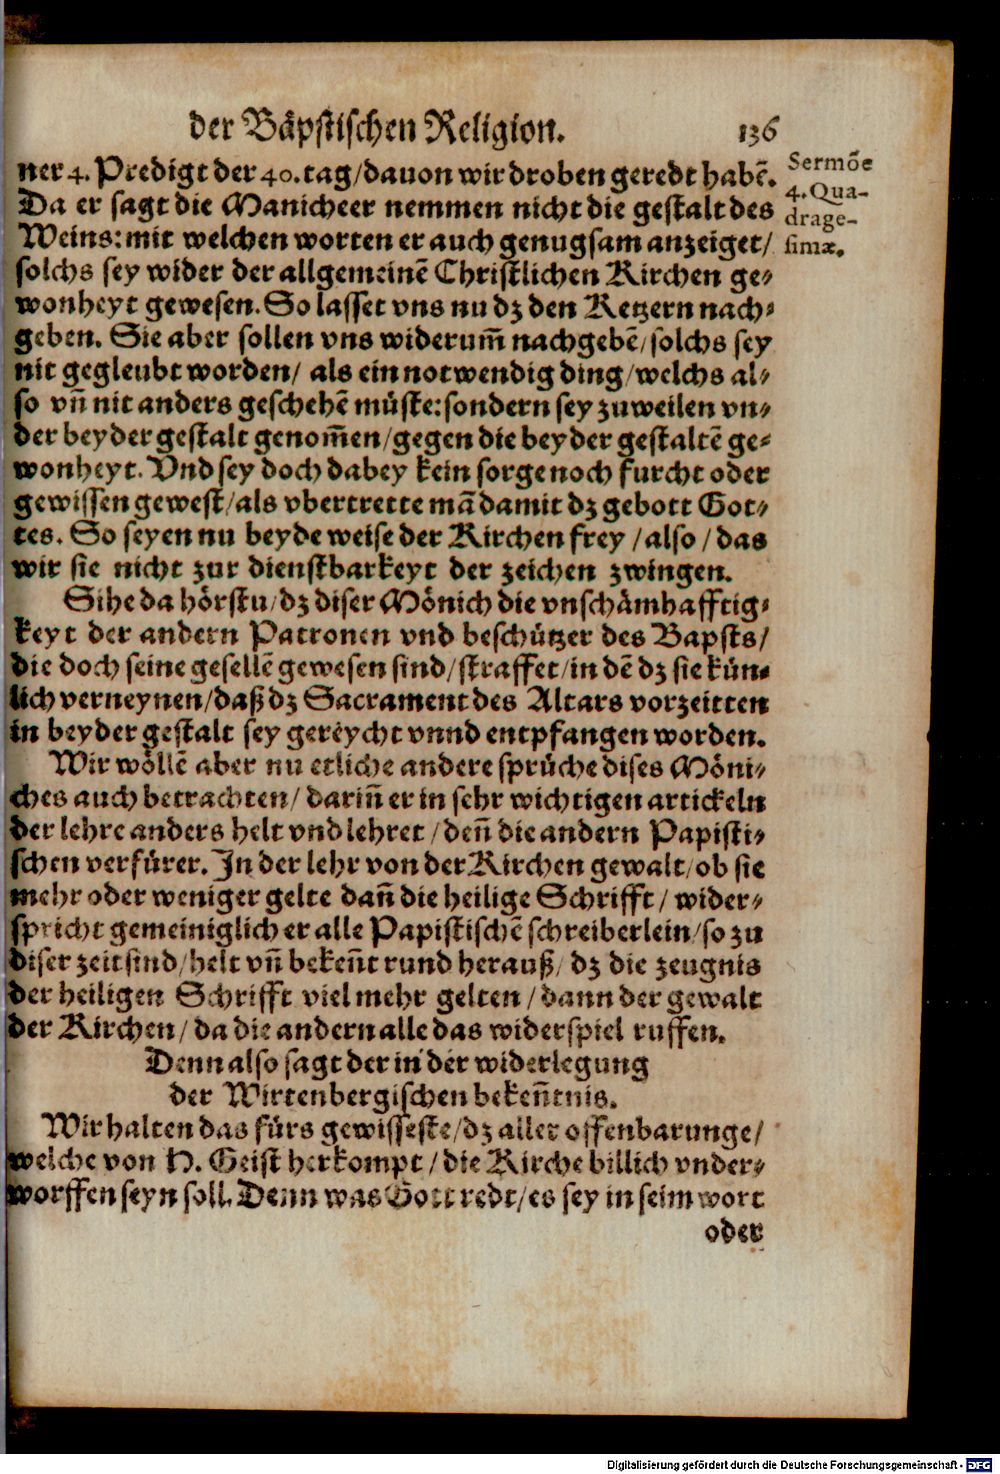 der Bäpstischen Religion. 136
ner 4. Predigt der 40. tag/dauon wir droben geredt habē.
Sermōe
4. Qua-
drage-
simæ.
Da er sagt die Manicheer nemmen nicht die gestalt des
Weins: mit welchen worten er auch genugsam anzeiget/
solchs sey wider der allgemeinē Christlichen Kirchen ge-
wonheyt gewesen. So lasset vns nu dz den Ketzern nach-
geben. Sie aber sollen vns widerum̄ nachgebē/solchs sey
nit gegleubt worden/ als ein notwendig ding/welchs al-
so vn̄ nit anders geschehē müste: sondern sey zuweilen vn-
der beyder gestalt genom̄en/gegen die beyder gestaltē ge-
wonheyt. Vnd sey doch dabey kein sorge noch furcht oder
gewissen gewest/als vbertrette mā damit dz gebott Got-
tes. So seyen nu beyde weise der Kirchen frey/also/das
wir sie nicht zur dienstbarkeyt der zeichen zwingen.
Sihe da hörstu/dz diser Mönich die vnschämhafftig-
keyt der andern Patronen vnd beschützer des Bapsts/
die doch seine gesellē gewesen sind/straffet/in dē dz sie kün-
lich verneynen/daß dz Sacrament des Altars vorzeitten
in beyder gestalt sey gereycht vnnd entpfangen worden.
Wir wöllē aber nu etliche andere sprüche dises Möni-
ches auch betrachten/ darin̄ er in sehr wichtigen artickeln
der lehre anders helt vnd lehret/den̄ die andern Papisti-
schen verfürer. In der lehr von der Kirchen gewalt/ob sie
mehr oder weniger gelte dan̄ die heilige Schrifft/ wider-
spricht gemeiniglich er alle Papistischē schreiberlein/so zu
diser zeit sind/helt vn̄ beken̄t rund herauß/ dz die zeugnis
der heiligen Schrifft viel mehr gelten/dann der gewalt
der Kirchen/da die andern alle das widerspiel ruffen.
Denn also sagt der in der widerlegung
der Wirtenbergischen beken̄tnis.
Wir halten das fürs gewisseste/dz aller offenbarunge/
welche von H. Geist herkompt/die Kirche billich vnder-
worffen seyn soll. Denn was Gott redt/es sey in seim wort
oder
Digitalisierung gefördert durch die Deutsche Forschungsgemeinschaft - DFG